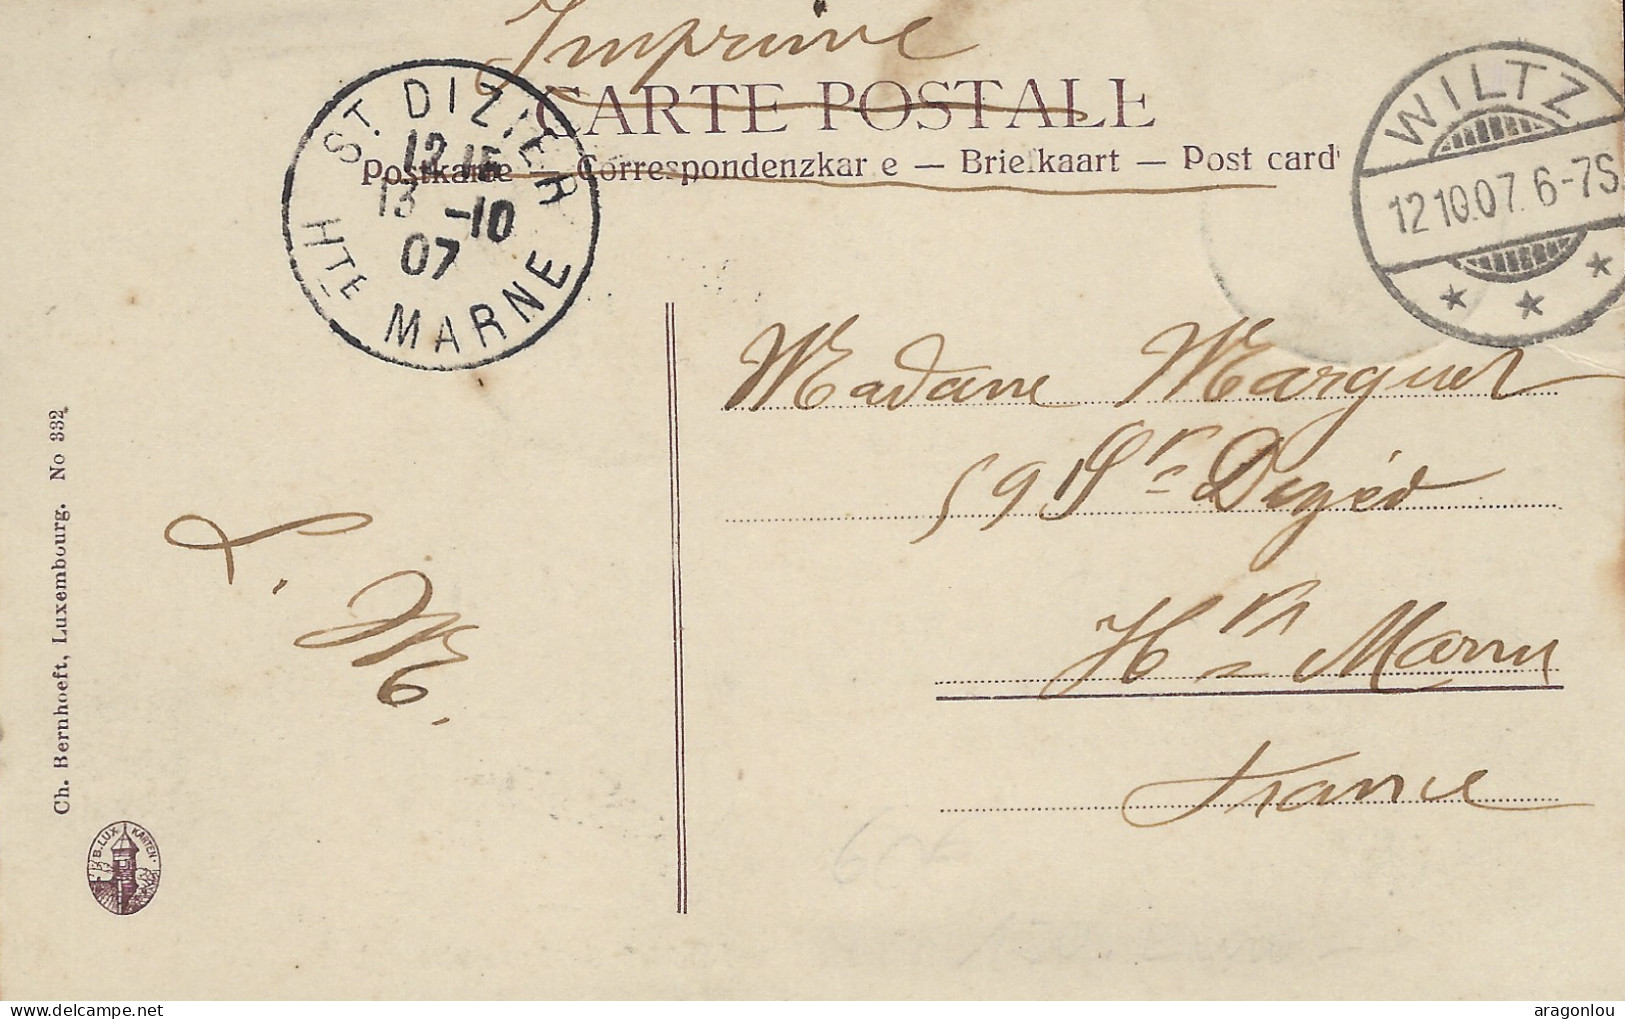 Imprimé
CARTE POSTALE
Postkarte — Correspondenzkar e — Briefkaart — Post card
ST. DIZIER
12 15
13 -10
07
HTE MARNE
WILTZ
12.10.07. 6-7S.
Madame Marquet
59 St Dizier
Hte Marne
France
L. M.
Ch. Bernhoeft, Luxembourg. No 332
B. LUX. KARTEN.
aragonlou